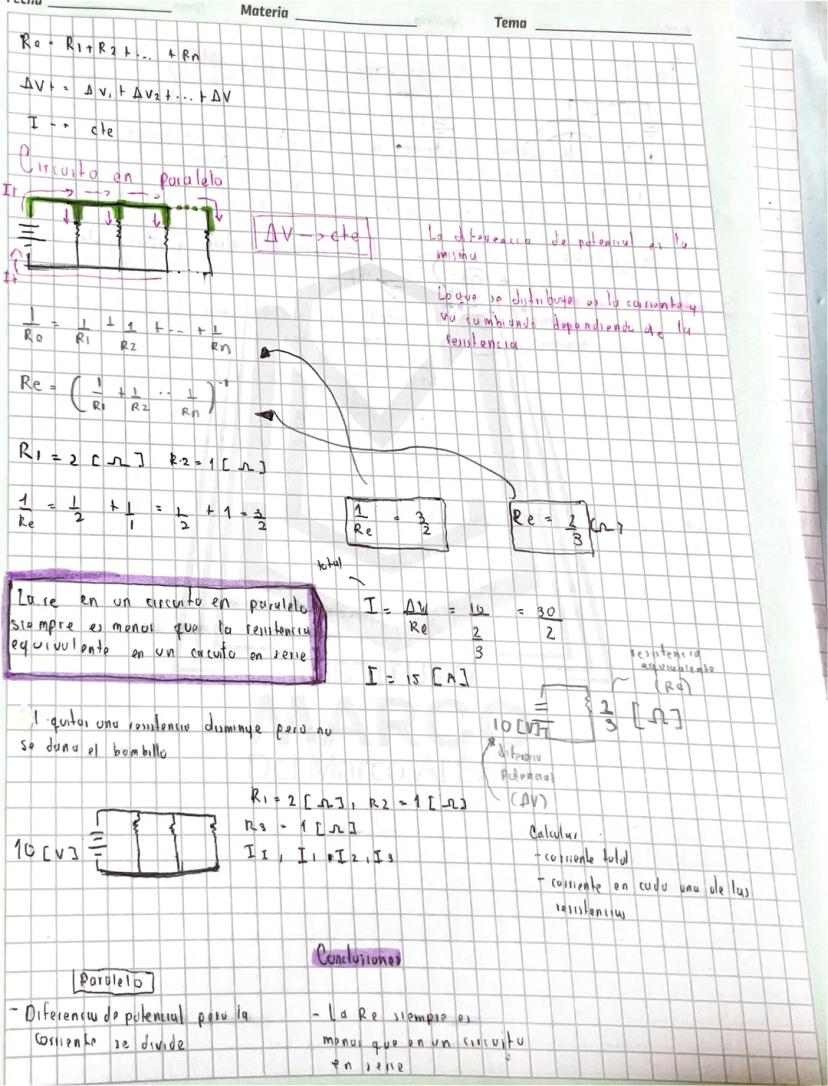 Materia
Tema
Re = R1 + R2 + ... + Rn
ΔVt = ΔV1 + ΔV2 + ... + ΔV
I -→ cte
Circuito en paralelo
It
ΔV → cte
La diferencia de potencial es la
misma
It
Lo que se distribuye es la corriente y
va cambiando dependiendo de la
resistencia
1/Re = 1/R1 + 1/R2 + ... + 1/Rn
Re = (1/R1 + 1/R2 ... 1/Rn)^-1
R1 = 2 [Ω] R2 = 1 [Ω]
1/Re = 1/2 + 1/1 = 1/2 + 1 = 3/2
1/Re = 3/2
Re = 2/3 [Ω]
total
La re en un circuito en paralelo
siempre es menor que la resistencia
equivalente en un circuito en serie
I = ΔV/Re = 10/(2/3) = 30/2
I = 15 [A]
resistencia
equivalente
(Re)
10 [V]
2/3 [Ω]
potencial
(ΔV)
quitar una resistencia disminye pero no
se daña el bombillo
R1 = 2 [Ω], R2 = 1 [Ω]
R3 = 1 [Ω]
10 [V]
II, I1, I2, I3
Calcular
- corriente total
- corriente en cada una de las
resistencias
Conclusiones
Paralelo
- Diferencia de potencial pero la
corriente se divide
- La Re siempre es
menor que en un circuito
en serie